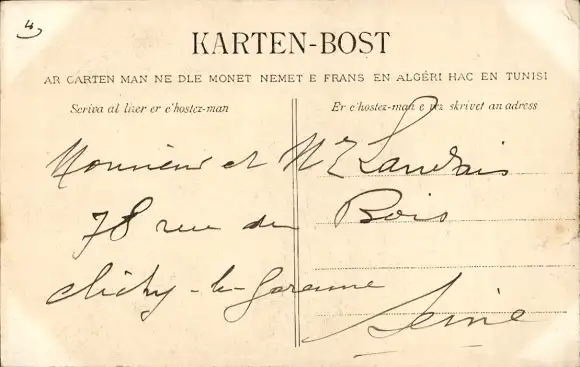 4
KARTEN-BOST
AR GARTEN MAN NE DLE MONET NEMET E FRANS EN ALGÉRI HAC EN TUNISI
Scriva al lizer er c'hostez-man
Er c'hostez-man e vez skrivet an adress
Monsieur et Me Landais
78 rue du Bois
Clichy-la-Garenne
Seine